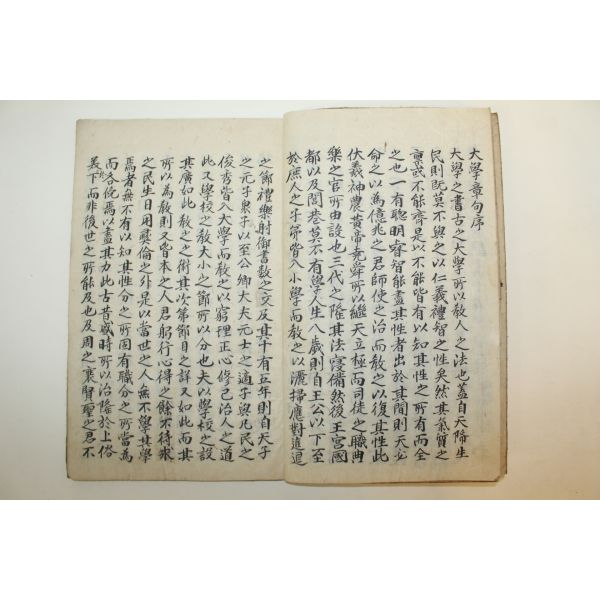 大學章句序
大學之書古之大學所以教人之法也蓋自天降生
民則旣莫不與之以仁義禮智之性矣然其氣質之
稟或不能齊是以不能皆有以知其性之所有而全
之也一有聰明睿智能盡其性者出於其間則天必
命之以爲億兆之君師使之治而教之以復其性此
伏羲神農黃帝堯舜所以繼天立極而司徒之職典
樂之官所由設也三代之隆其法寖備然後王宮國
都以及閭巷莫不有學人生八歲則自王公以下至
於庶人之子弟皆入小學而教之以灑掃應對進退
之節禮樂射御書數之文及其十有五年則自天子
之元子衆子以至公卿大夫元士之適子與凡民之
俊秀皆入大學而教之以窮理正心修己治人之道
此又學校之教大小之節所以分也夫以學校之設
其廣如此教之之術其次第節目之詳又如此而其
所以爲教則又皆本之人君躬行心得之餘不待求
之民生日用彛倫之外是以當世之人無不學其學
焉者無不有以知其性分之所固有職分之所當爲
而各俛焉以盡其力此古昔盛時所以治隆於上俗
美下而非後世之所能及也及周之衰賢聖之君不